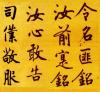 令名匪銘
汝前寔銘
汝心敢告
司僕敬服